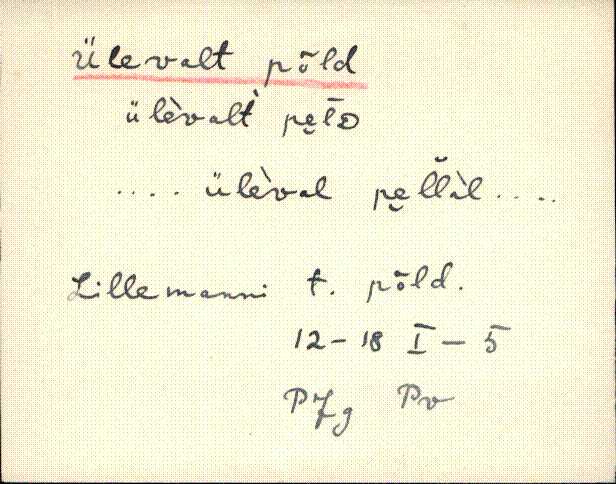 Ülevalt põld
ülèvalt́ pe̮l̄ᴅ
.... ülèval pe̮l̆làl ....
Lillemanni t. põld.
12-18 I - 5
Pv